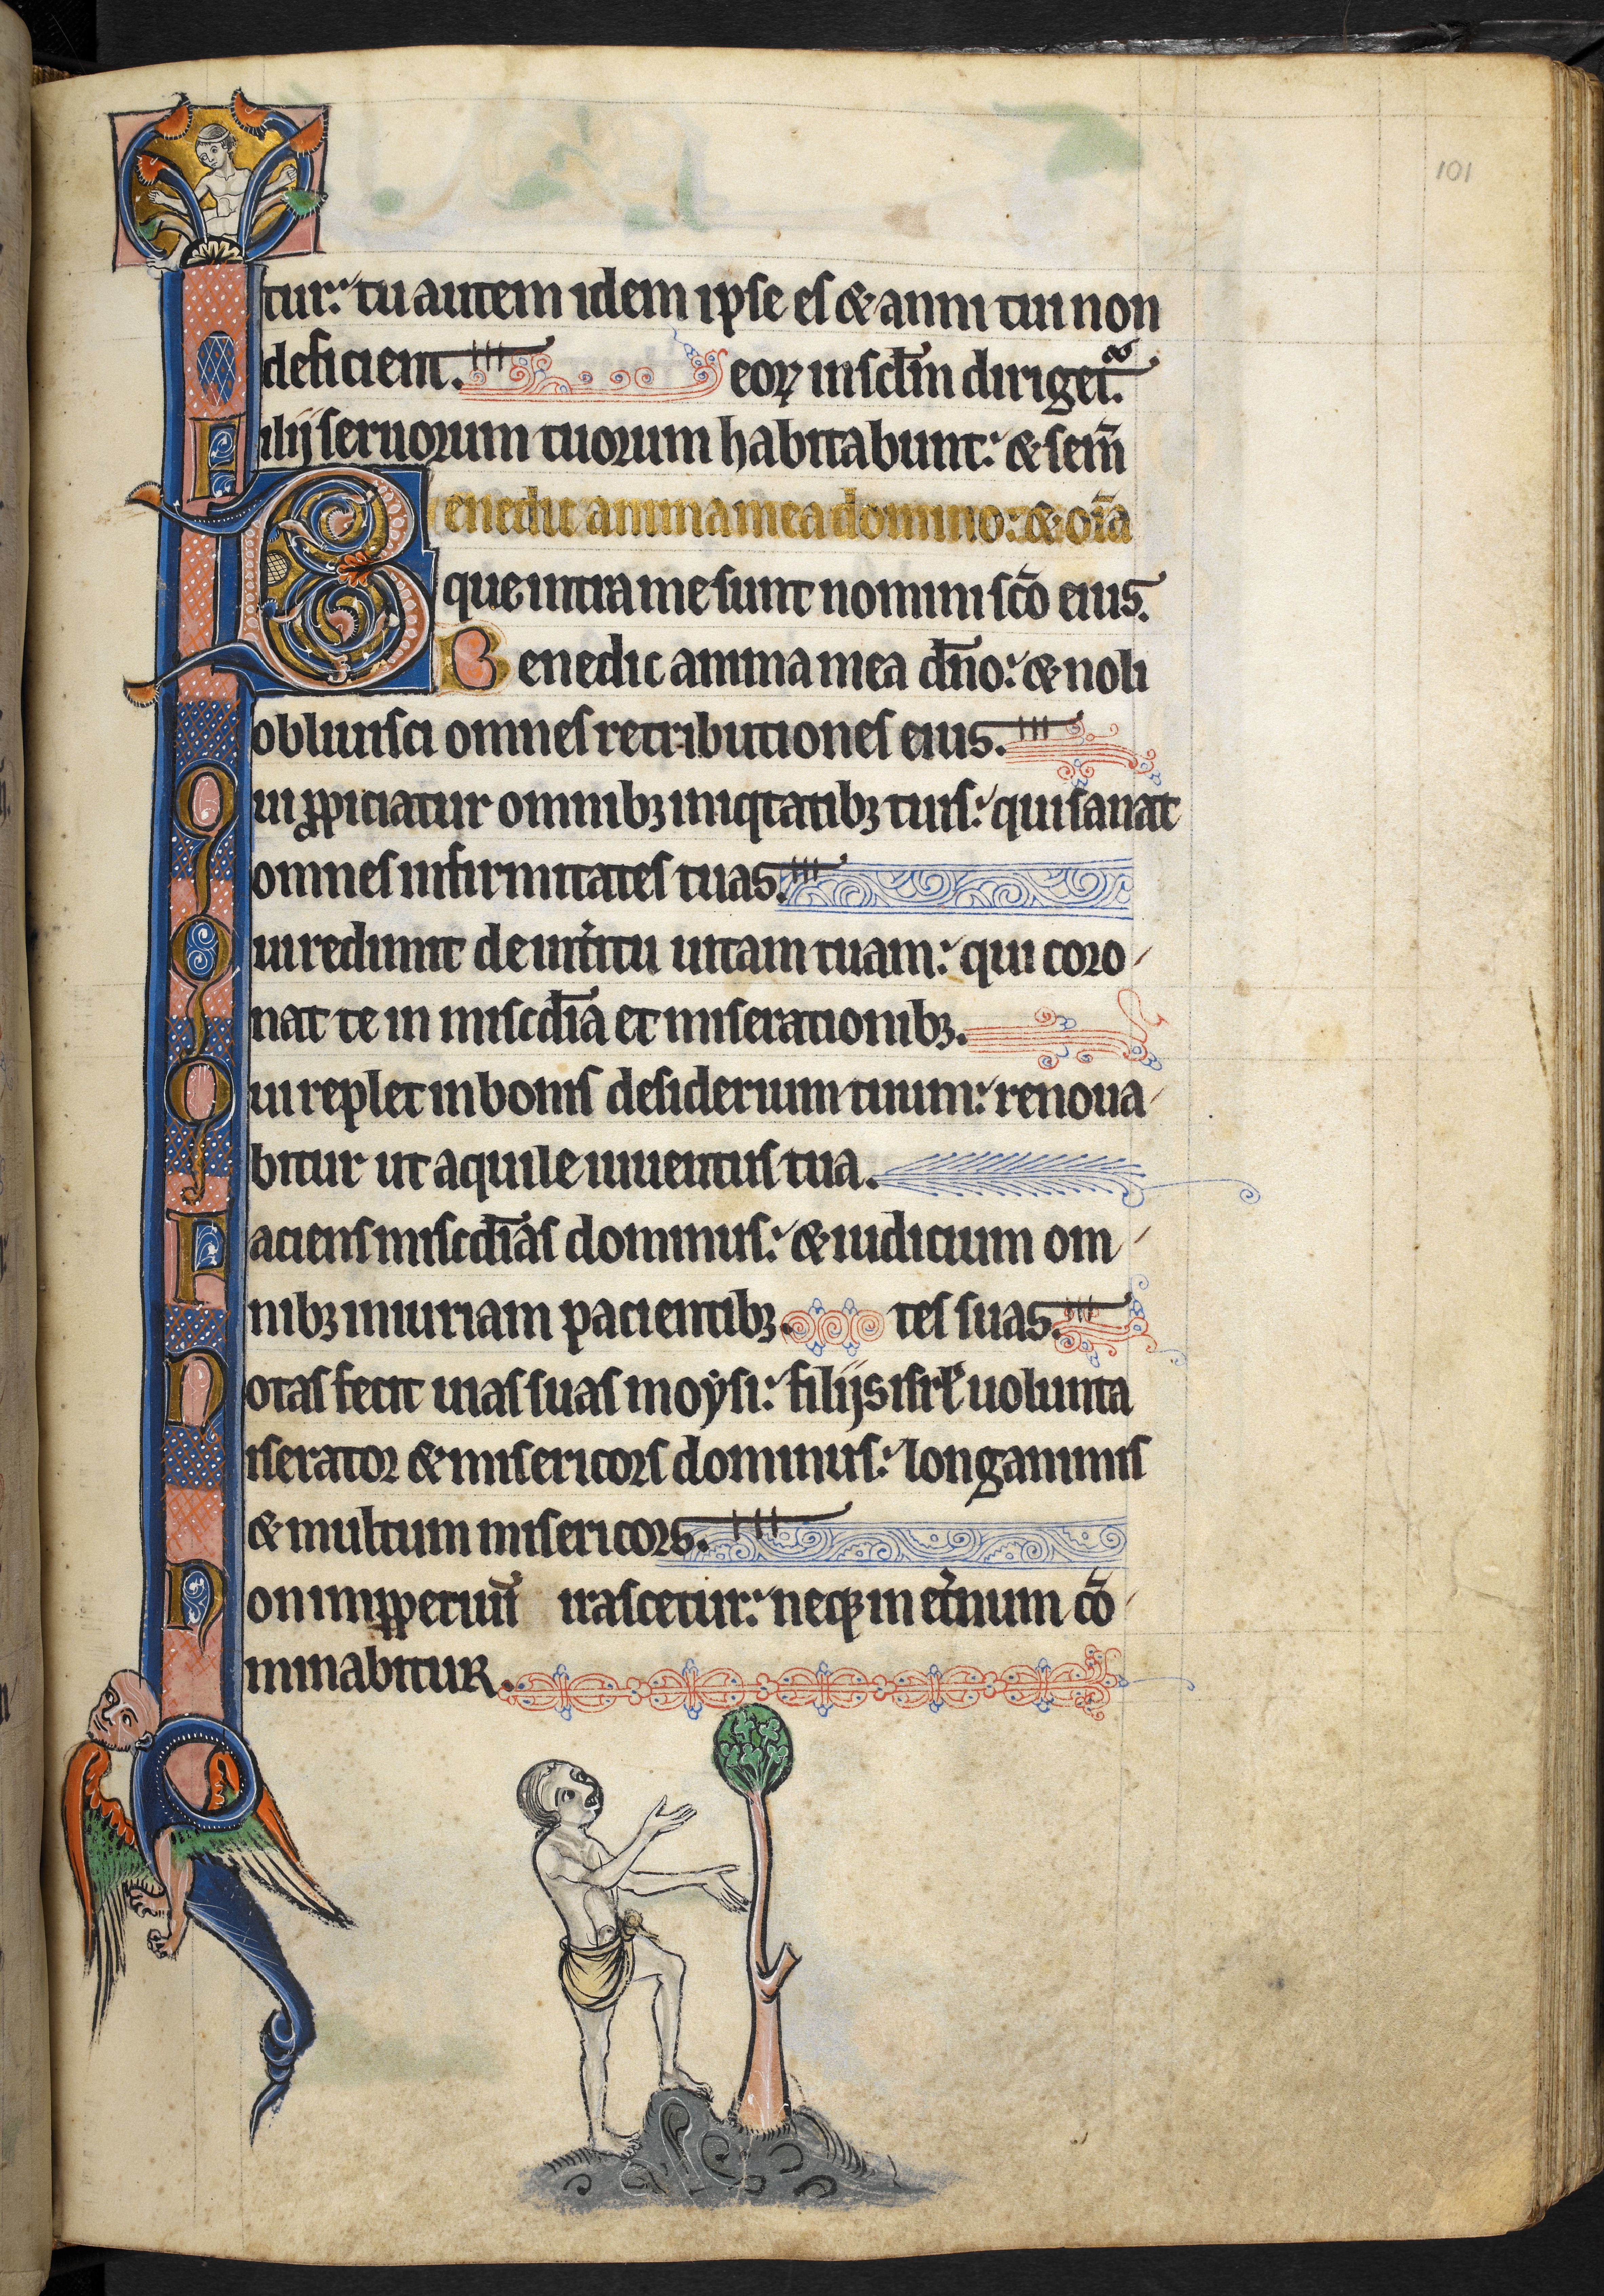 101
tur: tu autem idem ipse es & anni tui non
deficient. eoꝝ in sc̄lm dirigeť.
Filij seruorum tuorum habitabunt: & sem̄
Benedic anima mea domino: & om̄ia
que intra me sunt nomini sc̄o eius.
Benedic anima mea dn̄o: & noli
obliuisci omnes retributiones eius.
Qui ꝓpiciatur omnibꝫ iniqͥtatibꝫ tuis: qui sanat
omnes infirmitates tuas.
Qui redimit de int̾itu uitam tuam: qui coro
nat te in misc̄dia et miserationibꝫ.
Qui replet in bonis desiderium tuum: renoua
bitur ut aquile iuuentus tua.
Faciens misc̄dias dominus: & iudicium om
nibꝫ iniuriam pacientibꝫ. tes suas.
Notas fecit uias suas moysi: filijs isrl̄ uolunta
iserator & misericors dominus: longanimis
& multum misericors.
Non imꝑpetuū irascetur: neqꝫ in et̾num cō
minabitur.